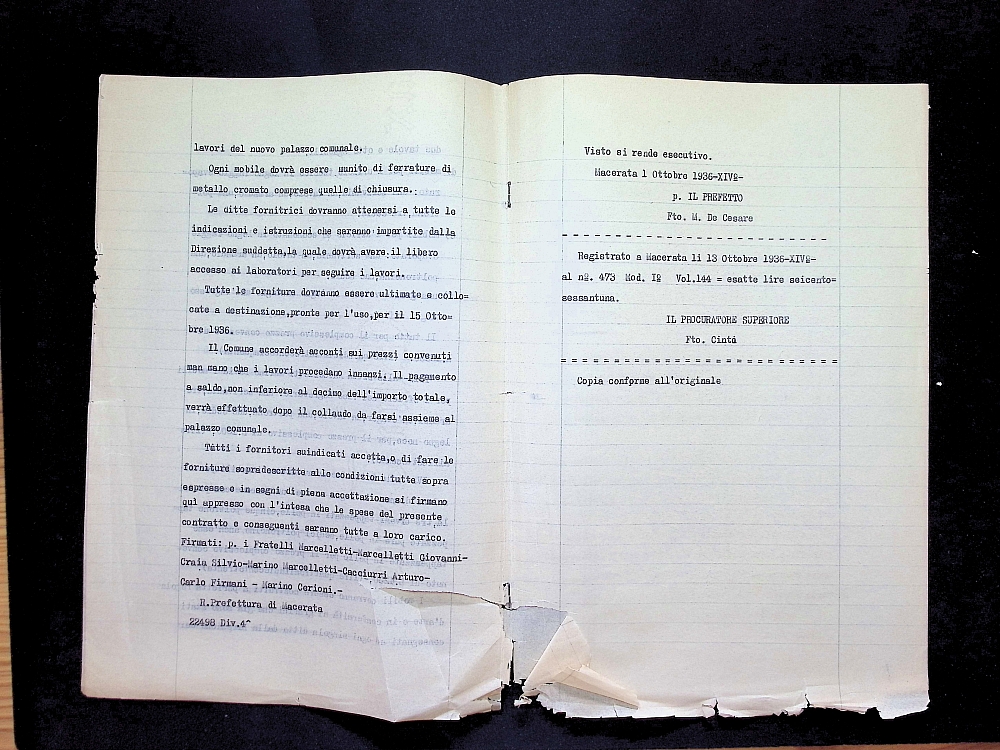 lavori del nuovo palazzo comunale.
Ogni mobile dovrà essere munito di ferrature di
metallo cromato comprese quelle di chiusura.
Le ditte fornitrici dovranno attenersi a tutte le
indicazioni e istruzioni che saranno impartite dalla
Direzione suddetta,la quale dovrà avere il libero
accesso ai laboratori per seguire i lavori.
Tutte le forniture dovranno essere ultimate e collo=
cate a destinazione,pronte per l'uso,per il 15 Otto=
bre 1936.
Il Comune accorderà acconti sui prezzi convenuti
man mano che i lavori procedano innanzi. Il pagamento
a saldo,non inferiore al decimo dell'importo totale,
verrà effettuato dopo il collaudo da farsi assieme al
palazzo comunale.
Tutti i fornitori suindicati accetta,o di fare le
forniture sopradescritte alle condizioni tutte sopra
espresse e in segni di piena accettazione si firmano
qui appresso con l'intesa che le spese del presente
contratto e conseguenti saranno tutte a loro carico.
Firmati: p. i Fratelli Marcelletti-Marcelletti Giovanni-
Craia Silvio-Marino Marcelletti-Cacciurri Arturo-
Carlo Firmani - Marino Cerioni.-
R.Prefettura di Macerata
22498 Div.4^
Visto si rende esecutivo.
Macerata 1 Ottobre 1936-XIVº-
p. IL PREFETTO
Fto. M. De Cesare
Registrato a Macerata li 13 Ottobre 1936-XIVº-
al nº. 473 Mod. Iº Vol.144 = esatte lire seicento=
sessantuna.
IL PROCURATORE SUPERIORE
Fto. Cintà
Copia conforme all'originale